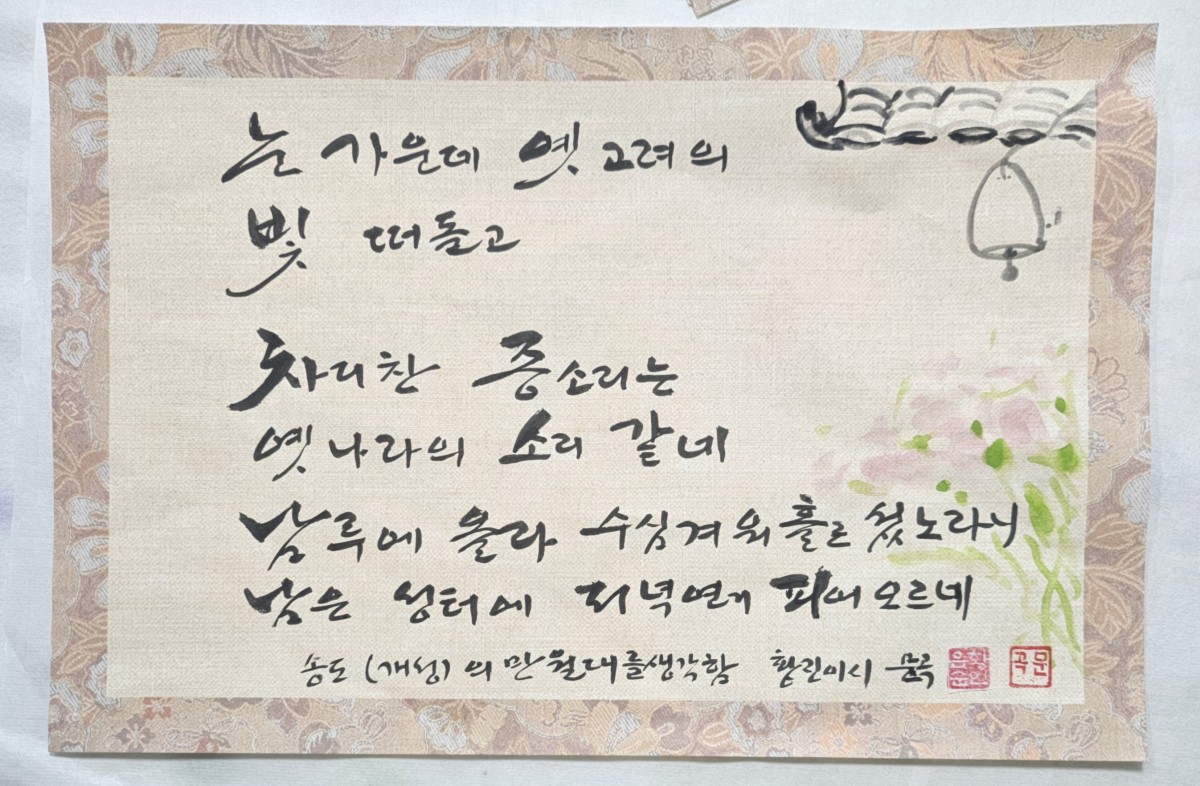 눈 가운데 옛 고려의
빛 떠돌고
차디찬 종소리는
옛 나라의 소리 같네
남루에 올라 수심겨워 홀로 섰노라니
남은 성터에 저녁연기 피어오르네
송도 (개성)의 만월대를생각함 황진이시 문곡
문곡